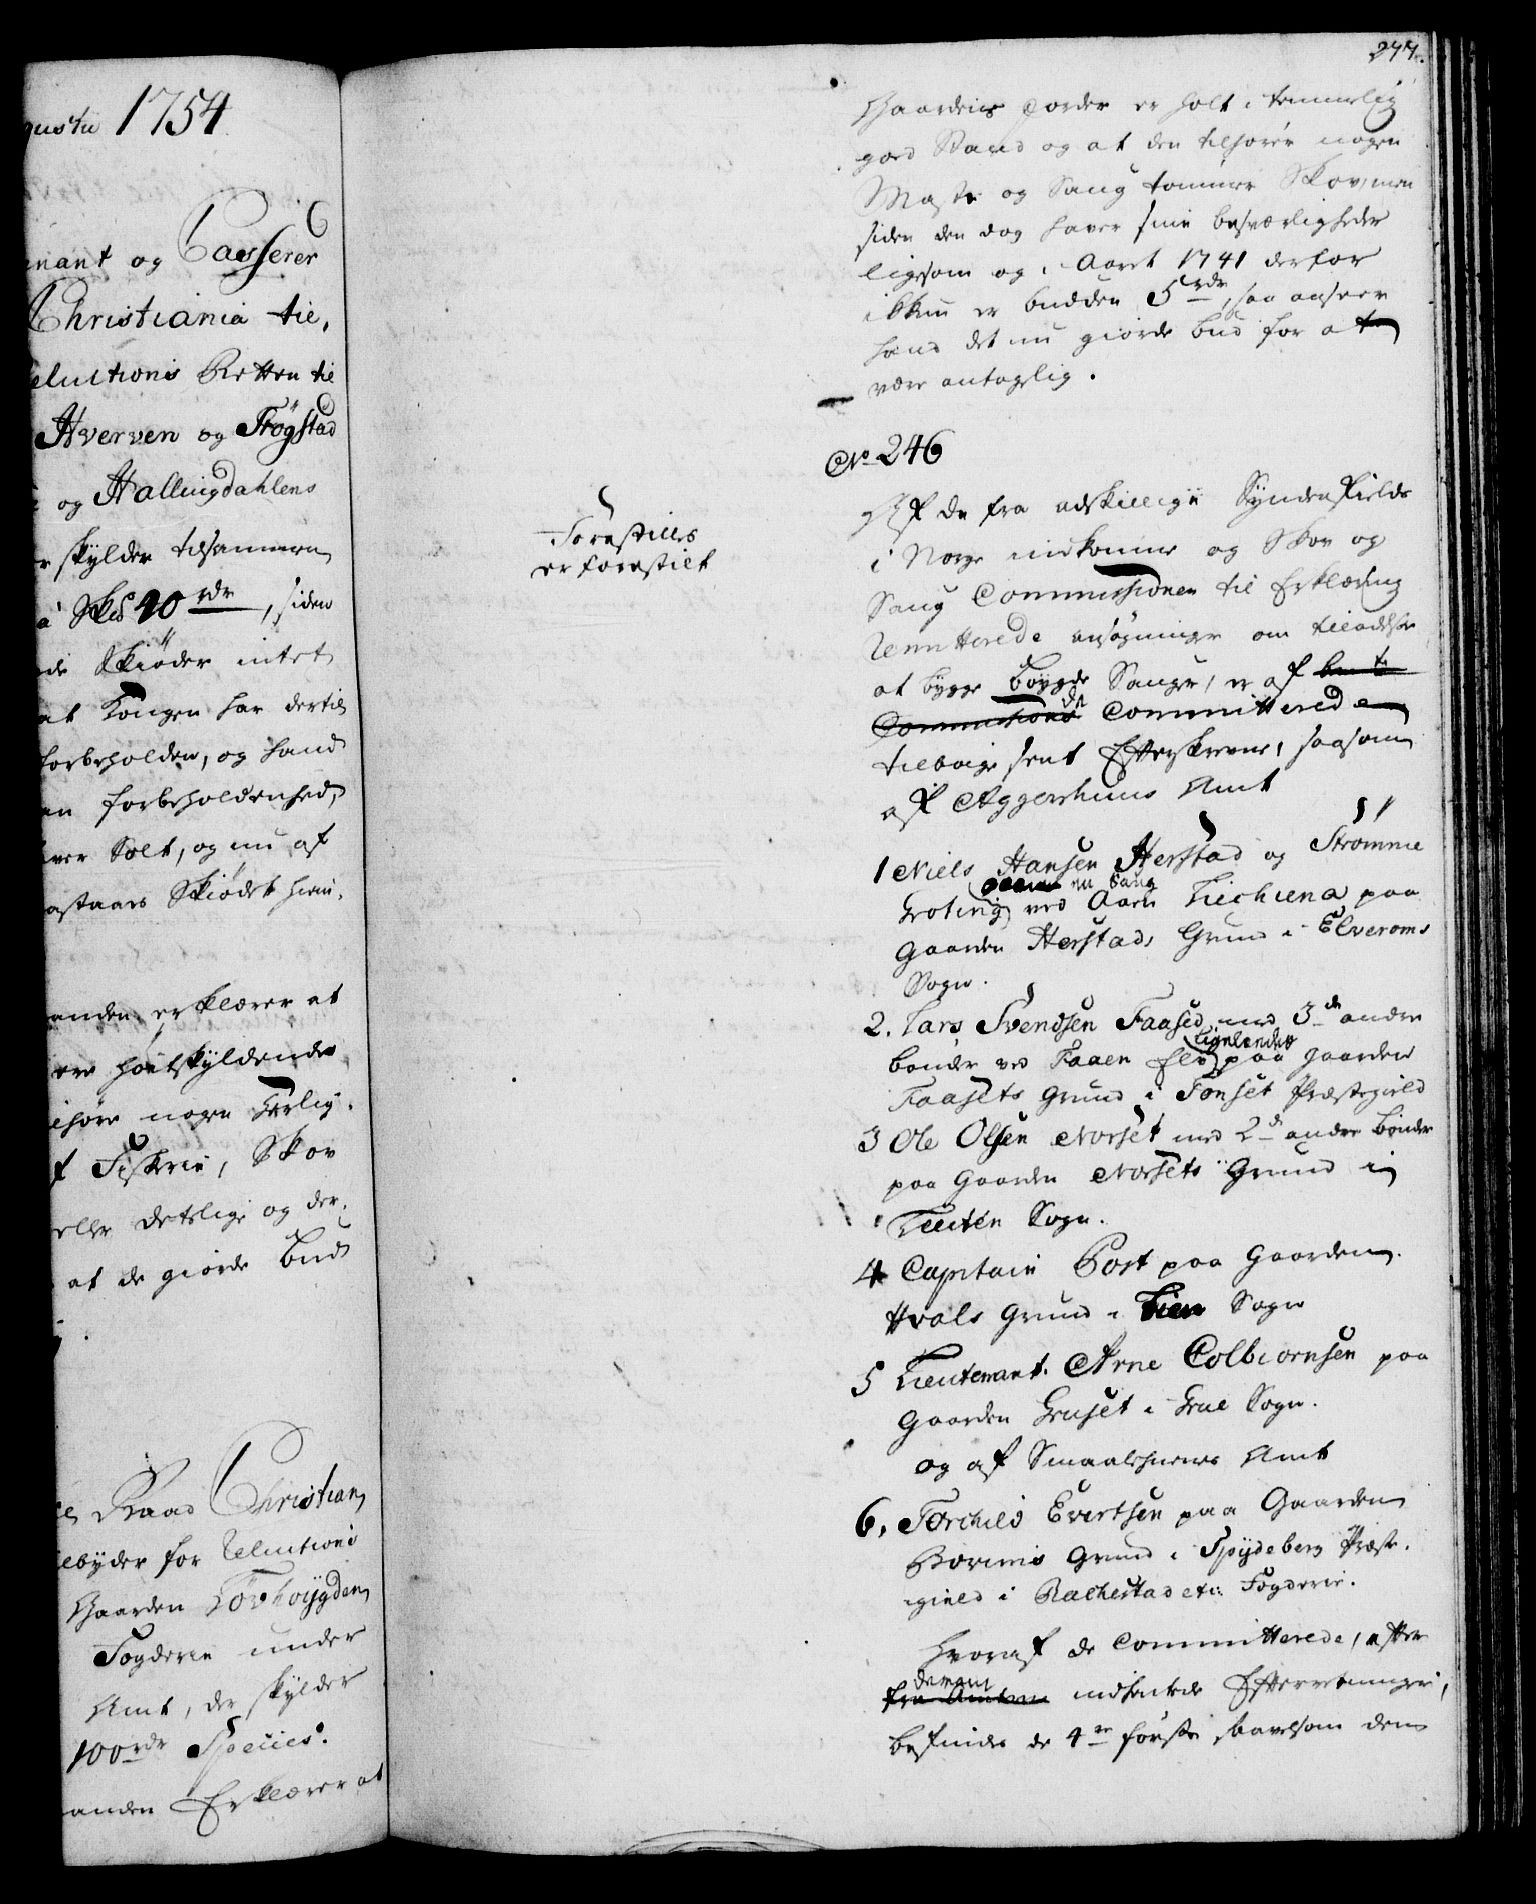 gusti 1754
nant og Casserer
Christiania til,
Reluctions Retten til
Hverven og Frøgstad
og Hallingdahlens
skylder tilsammen
a Skd 40 rdr, siden
de Skiøder intet
at Kongen har dertil
forbeholden, og hand
en forbeholdenhed,
ver Solt, og nu af
astaaer Skiødet hvin,
anden erklærer at
ere høitskyldende
ehøre nogen Herlig,
f Fiskerie, Skov
eller deslige og der,
at de giorde bud
Raad Christian
lbyder for Reluctions
Gaarden Tovhoygden
Fogderie under
Amt, der skylder
100 rdr Species.
anden Erklærer at
277.
Gaardens Jorder er holt i temmelig
goed Stand og at den tilhører nogen
Maste og Saug tømmer Skov, men
siden den dog haver sine besværligheder
ligesom og i Aaret 1741 derfor
ikkun er budden 5 rdr, saa anseer
hand det nu giorde bud for at
være antagelig.
No 246
Forestilles
er forestilt
Af de fra adskillige Syndenfields
i Norge indkomne og Skov og
Saug Commissionen til Erklæring
Remitterede ansøgninger om tilladelse
at bygge bøygde Sauge, er af
Commissions de Committerede
tilbage sent Efterskrevne, saasom
af Aggershuus Amt
1 Niels Hansen Herstad og Strømme
en Saug
Groting ved Aaen Liechiena paa
Gaarden Herstads Grund i Elverøms
Sogn.
2. Lars Svendsen Faased med 3de andre
beliggende
bønder ved Faaen Elv paa Gaarden
Faasets Grund i Tønset Præstegield
3 Ole Olsen Norset med 2de andre bønder
paa Gaarden Norsets Grund i
Leuten Sogn.
4 Capitain Post paa Gaarden
Hvals Grund i Lien Sogn
5 Lieutenant Arne Colbiørnsen paa
Gaarden Gruset i Grue Sogn.
og af Smaalehnenes Amt
6. Torchild Evertsen paa Gaarden
Grund i Spydeberg Præste,
gield i Rachestad etc: Fogderie.
Hvoraf de Committerede, efter
derom
fra Amtene indhentede Efterretninger,
befinde de 4re første saavelsom den